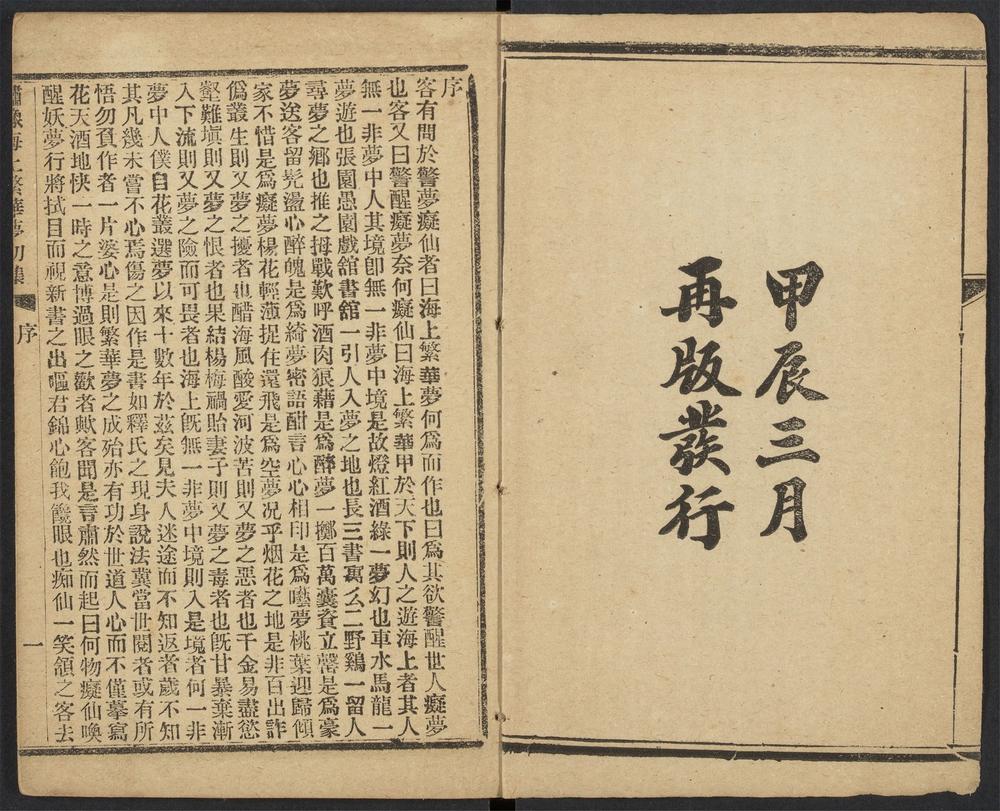 甲辰三月
再版發行
序
客有問於警夢癡仙者曰海上繁華夢何爲而作也曰爲其欲警醒世人癡夢
也客又曰警醒癡夢奈何癡仙曰海上繁華甲於天下則人之遊海上者其人
無一非夢中人其境卽無一非夢中境是故燈紅酒綠一夢幻也車水馬龍一
夢遊也張園愚園戲舘書舘一引人入夢之地也長三書寓么二野鷄一留人
尋夢之鄉也推之拇戰歡呼酒肉狼藉是爲醉夢一擲百萬囊資立罄是爲豪
夢送客留髡盪心醉魄是爲綺夢密語酣言心心相印是爲囈夢桃葉迎歸傾
家不惜是爲癡夢楊花輕薄捉住還飛是爲空夢况乎烟花之地是非百出詐
僞叢生則又夢之擾者也醋海風酸愛河波苦則又夢之惡者也千金易盡慾
壑難塡則又夢之恨者也果結楊梅禍貽妻子則又夢之毒者也旣甘暴棄漸
入下流則又夢之險而可畏者也海上旣無一非夢中境則入是境者何一非
夢中人僕自花叢選夢以來十數年於茲矣見夫人迷途而不知返者歲不知
其凡幾未嘗不心焉傷之因作是書如釋氏之現身說法冀當世閱者或有所
悟勿負作者一片婆心是則繁華夢之成殆亦有功於世道人心而不僅摹寫
花天酒地快一時之意博過眼之歡者歟客聞是言肅然而起曰何物癡仙喚
醒妖夢行將拭目而視新書之出嘔君錦心飽我饞眼也痴仙一笑頷之客去
繡像海上繁華夢初集 序 一